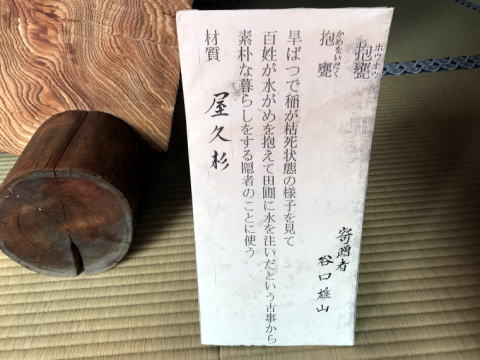 ホウオウ
抱甕
かめをいだく
抱甕
旱ばつで稲が枯死状態の様子を見て
百姓が水がめを抱えて田圃に水を注いだという古事から
素朴な暮らしをする隠者のことに使う
材質 屋久杉
寄贈者 谷口雄山